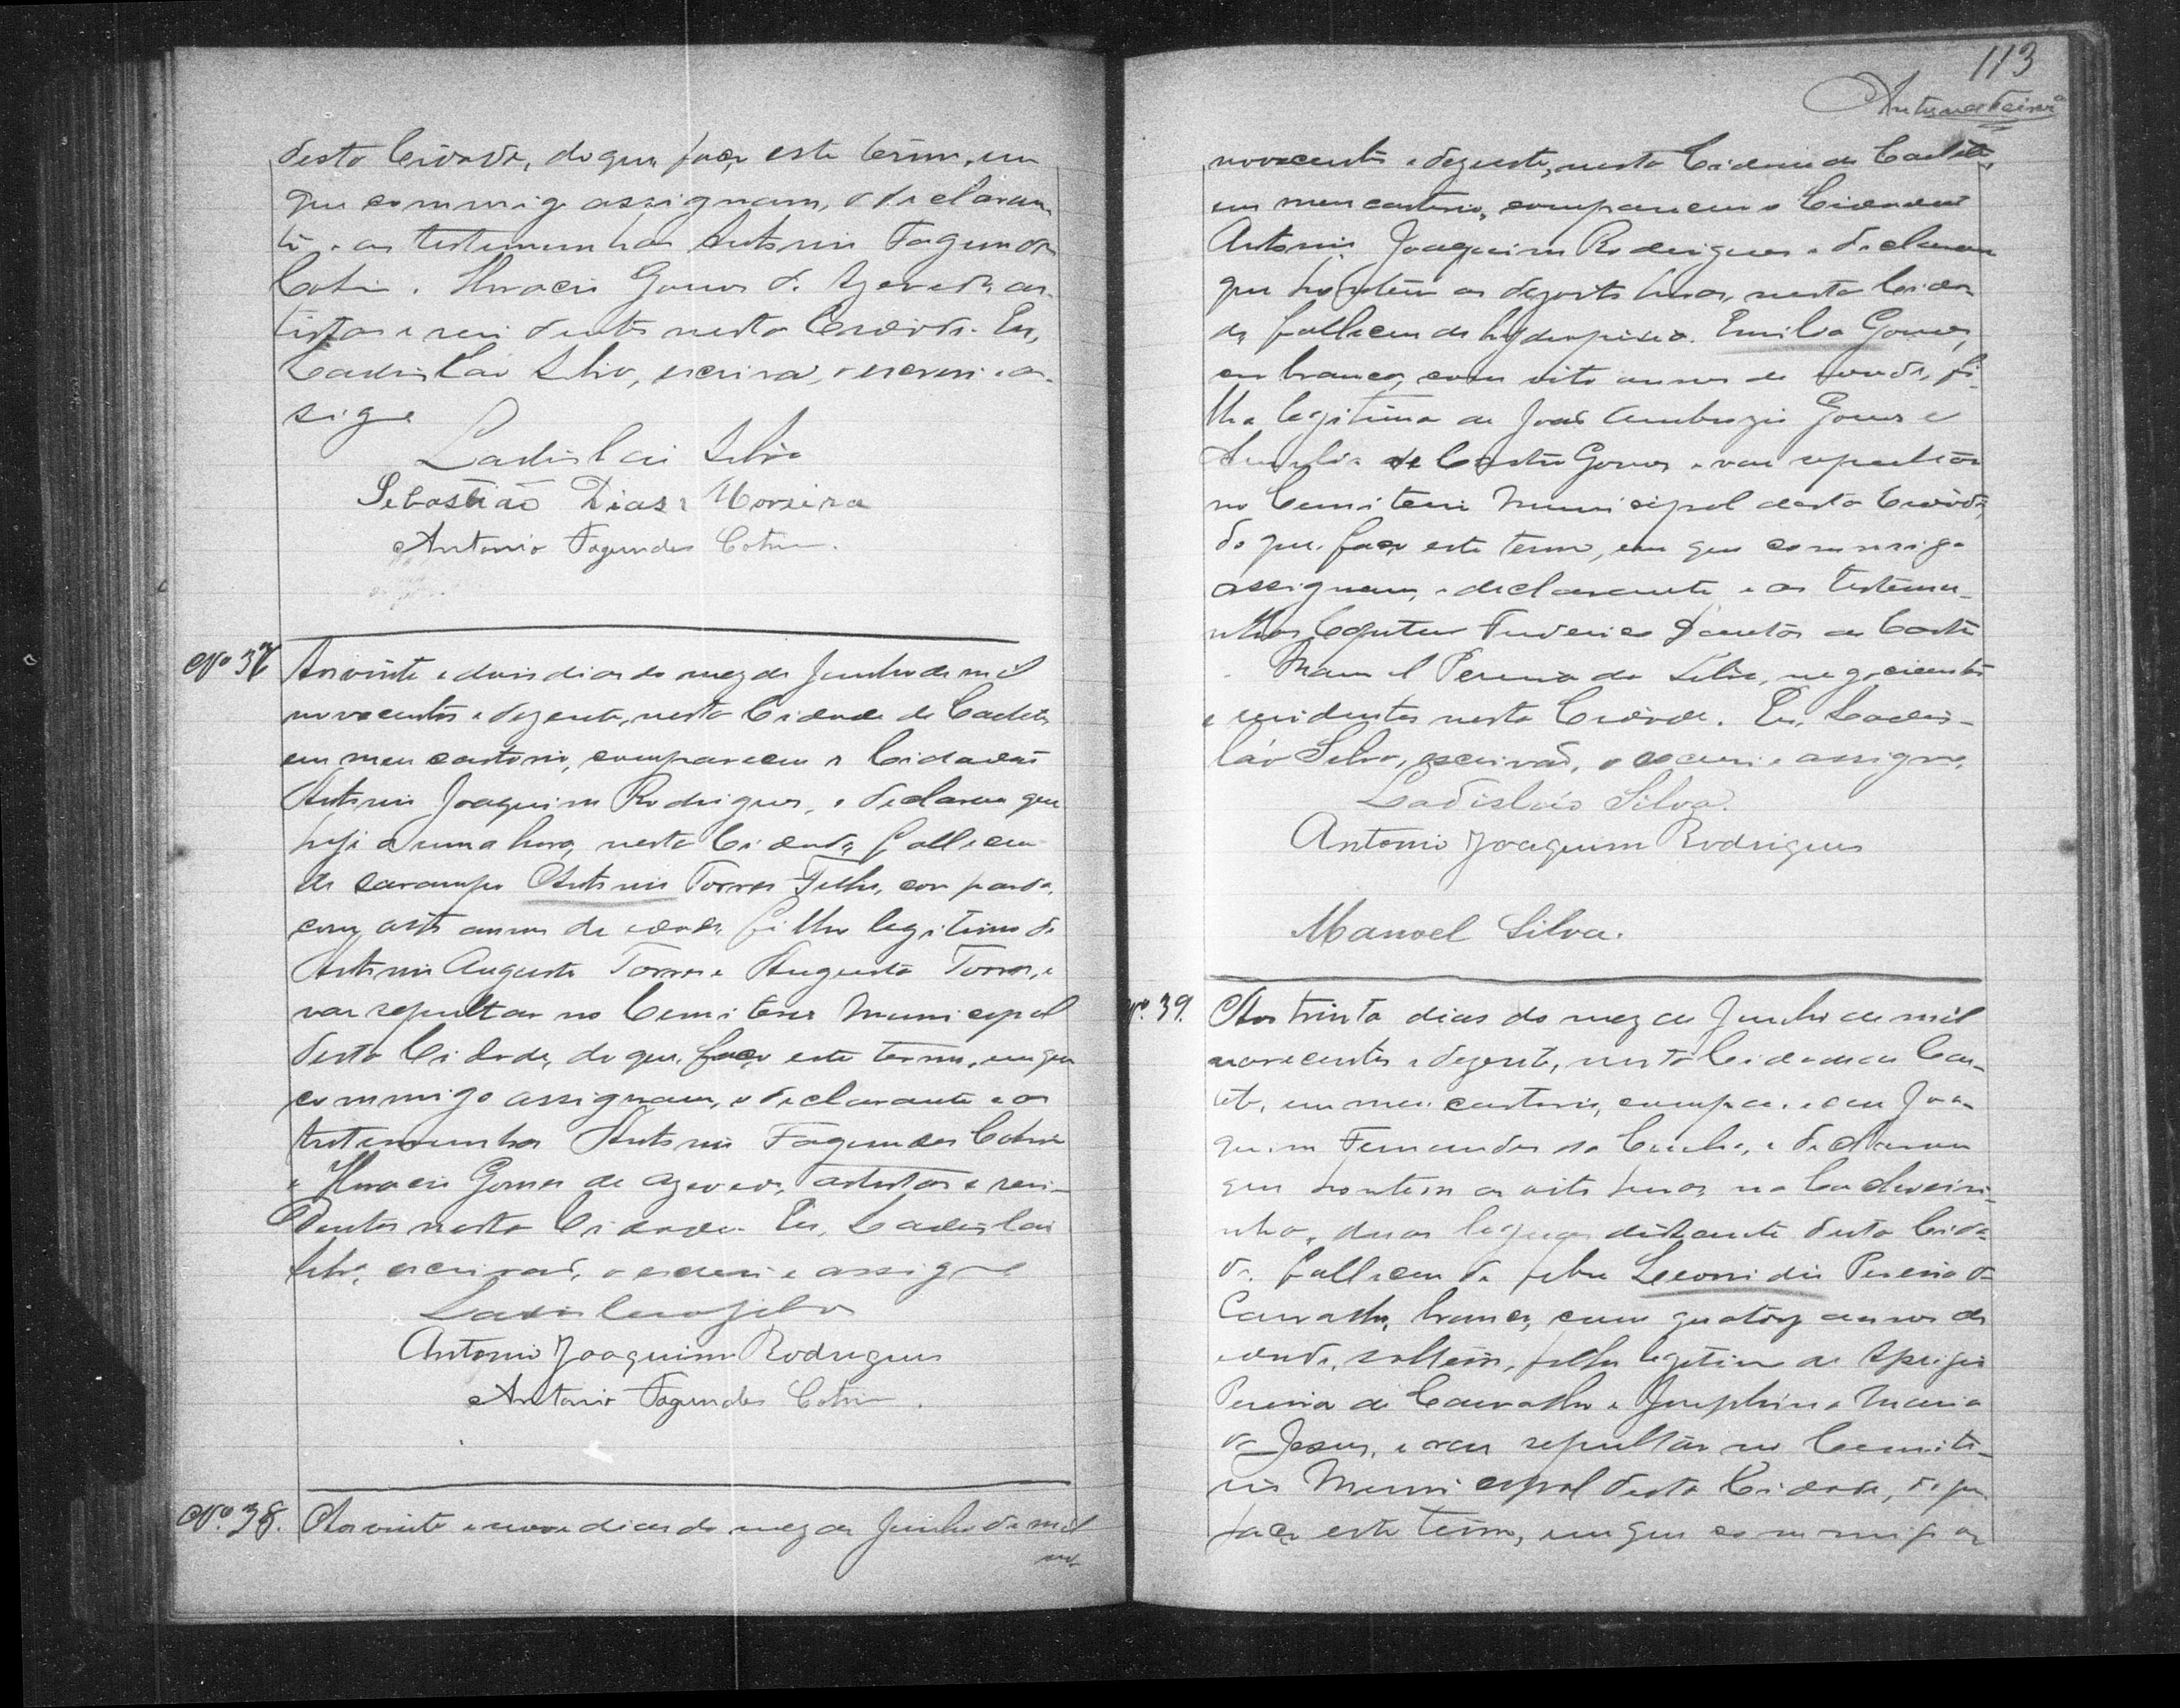 desta Cidade, do que faço este termo, em
que commigo assignam, o declaran
te e as testemunhas Antonio Fagundes
Cotrim e Horacio Gomes de Azevedo, ar
tistas e residentes nesta Cidade. Eu,
Ladislau Silva, escrivão, o escrevi e as-
signo
Ladislau Silva
Sebastião Dias Moreira
Antonio Fagundes Cotrim.
Nº 37 Aos vinte e dois dias do mez de Junho de mil
novecentos e dezesete, nesta Cidade de Caeteté
em meu cartorio, compareceu o Cidadão
Antonio Joaquim Rodrigues, e declarou que
hoje a uma hora, nesta Cidade, falleceu
de sarampo Antonio Torres Filho, cor parda,
com oito annos de edade, filho legitimo de
Antonio Augusto Torres e Augusta Torres, e
vae sepultar no Cemiterio Municipal
desta Cidade, do que faço este termo, em que
commigo assignam, o declarante e as
testemunhas Antonio Fagundes Cotrim
e Horacio Gomes de Azevedo, artistas e resi-
dentes nesta Cidade. Eu, Ladislau
Silva, escrivão, o escrevi e assigno
Ladislau Silva
Antonio Joaquim Rodrigues
Antonio Fagundes Cotrim.
Nº. 38. Aos vinte e nove dias do mez de Junho de mil
no-
113
novecentos e dezesete, nesta Cidade de Caeteté,
em meu cartorio, compareceu o Cidadão
Antonio Joaquim Rodrigues e declarou
que hontem as dezoito horas, nesta Cida
de, falleceu de hydropisia Emilia Gomes,
cor branca, com oito annos de edade, fi-
lha legitima de João Ambrozio Gomes e
de Castro Gomes e vae sepultar
no Cemiterio Municipal desta Cidade,
do que faço este termo, em que commigo
assignam, o declarante e as testemu-
nhas Capitão Frederico Dantas de Castro
e Manoel Pereira da Silva, negociantes
e residentes nesta Cidade. Eu, Ladis-
láo Silva, escrivão, o escrevi e assigno.
Ladisláo Silva.
Antonio Joaquim Rodrigues
Manoel Silva.
Nº. 39. Aos trinta dias do mez de Junho de mil
novecentos e dezesete, nesta Cidade de Cae-
teté, em meu cartorio, compareceu Joa-
quim Fernandes da Cunha, e declarou
que hontem as oito horas, no
duas leguas distante desta Cida
de, falleceu de febre Leonidio Pereira de
Carvalho, branco, com quatorze annos de
edade, solteiro, filho legitimo de Aprigio
Pereira de Carvalho e Josephina Maria
de Jesus, e vae sepultar no Cemite-
rio Municipal desta Cidade, do que
faço este termo, em que commigo as